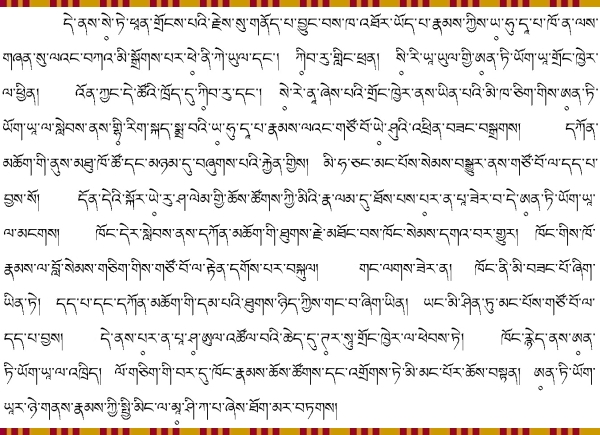 དེ་ནས་སེ་ཏེ་ཕན་གྲོངས་པའི་རྗེས་སུ་གནོད་པ་བྱུང་བས་ཁ་འཐོར་ཡོད་པ་རྣམས་ཀྱིས་ཡ་ཧུ་དཱ་པ་ཁོ་ན་ལས་
གཞན་སུ་ལའང་བཀའ་མི་སྒྲོགས་པར་ཕེ་ནི་ཀེ་ཡུལ་དང་། ཀིབ་རུ་གླིང་ཕྲན། སི་རི་ཡཱ་ཡུལ་གྱི་ཨན་ཏི་ཡོག་ཡཱ་གྲོང་ཁྱེར་
ལ་ཕྱིན། འོན་ཀྱང་དེ་ཚོའི་ཁྲོད་དུ་ཀིབ་རུ་དང་། སེ་རེ་ནཱ་ཞེས་པའི་གྲོང་ཁྱེར་ནས་ཡིན་པའི་མི་ཁ་ཅིག་གིས་ཨན་ཏི་
ཡོག་ཡཱ་ལ་སླེབས་ནས་གྷི་རིག་སྐད་སྨྲ་བའི་ཡ་ཧུ་དཱ་པ་རྣམས་ལའང་གཙོ་བོ་ཡེ་ཤུའི་འཕྲིན་བཟང་བསྒྲགས། དཀོན་
མཆོག་གི་ནུས་མཐུ་ཁོ་ཚོ་དང་མཉམ་དུ་བཞུགས་པའི་རྐྱེན་གྱིས། མི་ཧ་ཅང་མང་པོས་སེམས་བསྒྱུར་ནས་གཙོ་བོ་ལ་དད་པ་
བྱས་སོ། དོན་དེའི་སྐོར་ཡེ་རུ་ཤ་ལེམ་གྱི་ཆོས་ཚོགས་ཀྱི་མིའི་རྣ་ལམ་དུ་ཐོས་པས་པར་ན་པཱ་ཟེར་བ་དེ་ཨན་ཏི་ཡོག་ཡཱ་
ལ་མངགས། ཁོང་དེར་སླེབས་ནས་དཀོན་མཆོག་གི་ཐུགས་རྗེ་མཐོང་བས་ཁོང་སེམས་དགའ་བར་གྱུར། ཁོང་གིས་ཁོ་
རྣམས་ལ་བློ་སེམས་གཅིག་གིས་གཙོ་བོ་ལ་རྟེན་དགོས་པར་བསྐུལ། གང་ལགས་ཟེར་ན། ཁོང་ནི་མི་བཟང་པོ་ཞིག་
ཡིན་ཏེ། དད་པ་དང་དཀོན་མཆོག་གི་དམ་པའི་ཐུགས་ཉིད་ཀྱིས་གང་བ་ཞིག་ཡིན། ཡང་མི་ཤིན་ཏུ་མང་པོས་གཙོ་བོ་ལ་
དད་པ་བྱས། དེ་ནས་པར་ན་པཱ་ཤཱ་ཨུལ་འཚོལ་བའི་ཆེད་དུ་ཊར་སུ་གྲོང་ཁྱེར་ལ་ཕེབས་ཏེ། ཁོང་རྙེད་ནས་ཨན་
ཏི་ཡོག་ཡཱ་ལ་འཁྲིད། ལོ་གཅིག་གི་བར་དུ་ཁོང་རྣམས་ཆོས་ཚོགས་དང་འགྲོགས་ཏེ་མི་མང་པོར་ཆོས་བསྟན། ཨན་ཏི་ཡོག་
ཡཱར་ཉེ་གནས་རྣམས་ཀྱི་སྤྱི་མིང་ལ་མཱ་ཤི་ཀ་པ་ཞེས་ཐོག་མར་བཏགས།